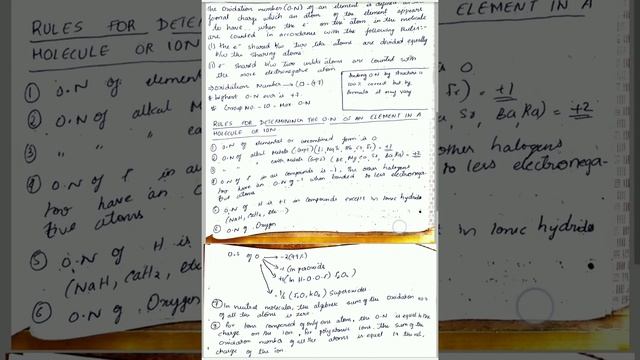 the Oxidation number (O.N) of an element is defined as the
formal charge which an atom of the element appears
to have when the e⁻ on the atom in the molecule
are counted in accordance with the following rules:-
(i) the e⁻ shared b/w two like atoms are divided equally
b/w the sharing atoms
(ii) e⁻ shared b/w two unlike atoms are counted with
the more electronegative atom
Oxidation Number
Highest O.N ever is
Group No - 10 = Max O.N
Finding O.N by structure is
100% correct but by
formula it may vary
RULES FOR DETERMINING THE O.N OF AN ELEMENT IN A
MOLECULE OR ION
① O.N of elemental or uncombined form is 0
② O.N of alkali Metals = +1
③ " " earth Metals (Be, Mg, Ca, Sr, Ba, Ra) = +2
④ O.N of F in all compounds is -1. The other halogens
too have an O.N of -1 when bonded to less electronega-
tive atoms
⑤ O.N of H is +1 in compounds except in Ionic hydrids
(NaH, CaH2, etc...)
⑥ O.N of Oxygen
O.S of O
-1 (in peroxide
Superoxides
⑦ In neutral molecules, the algebraic sum of the Oxidation no.s
of all the atoms is zero
⑧ For Ions composed of only one atom, the O.N is equal to the
charge on the ion. For polyatomic ions, the sum of the
oxidation number of all the atoms is equal to the
charge of the ion
RULES FOR DETER
MOLECULE OR ION
① O.N of elemen
② O.N of alkal Me
③ " "
④ O.N of F in a
too have an
tive atoms
⑤ O.N of H is
(NaH, CaH2, etc
⑥ O.N of Oxygen
ELEMENT IN A
is 0
= +1
Sr, Ba, Ra) = +2
other halogens
to less electronega-
in Ionic hydrids